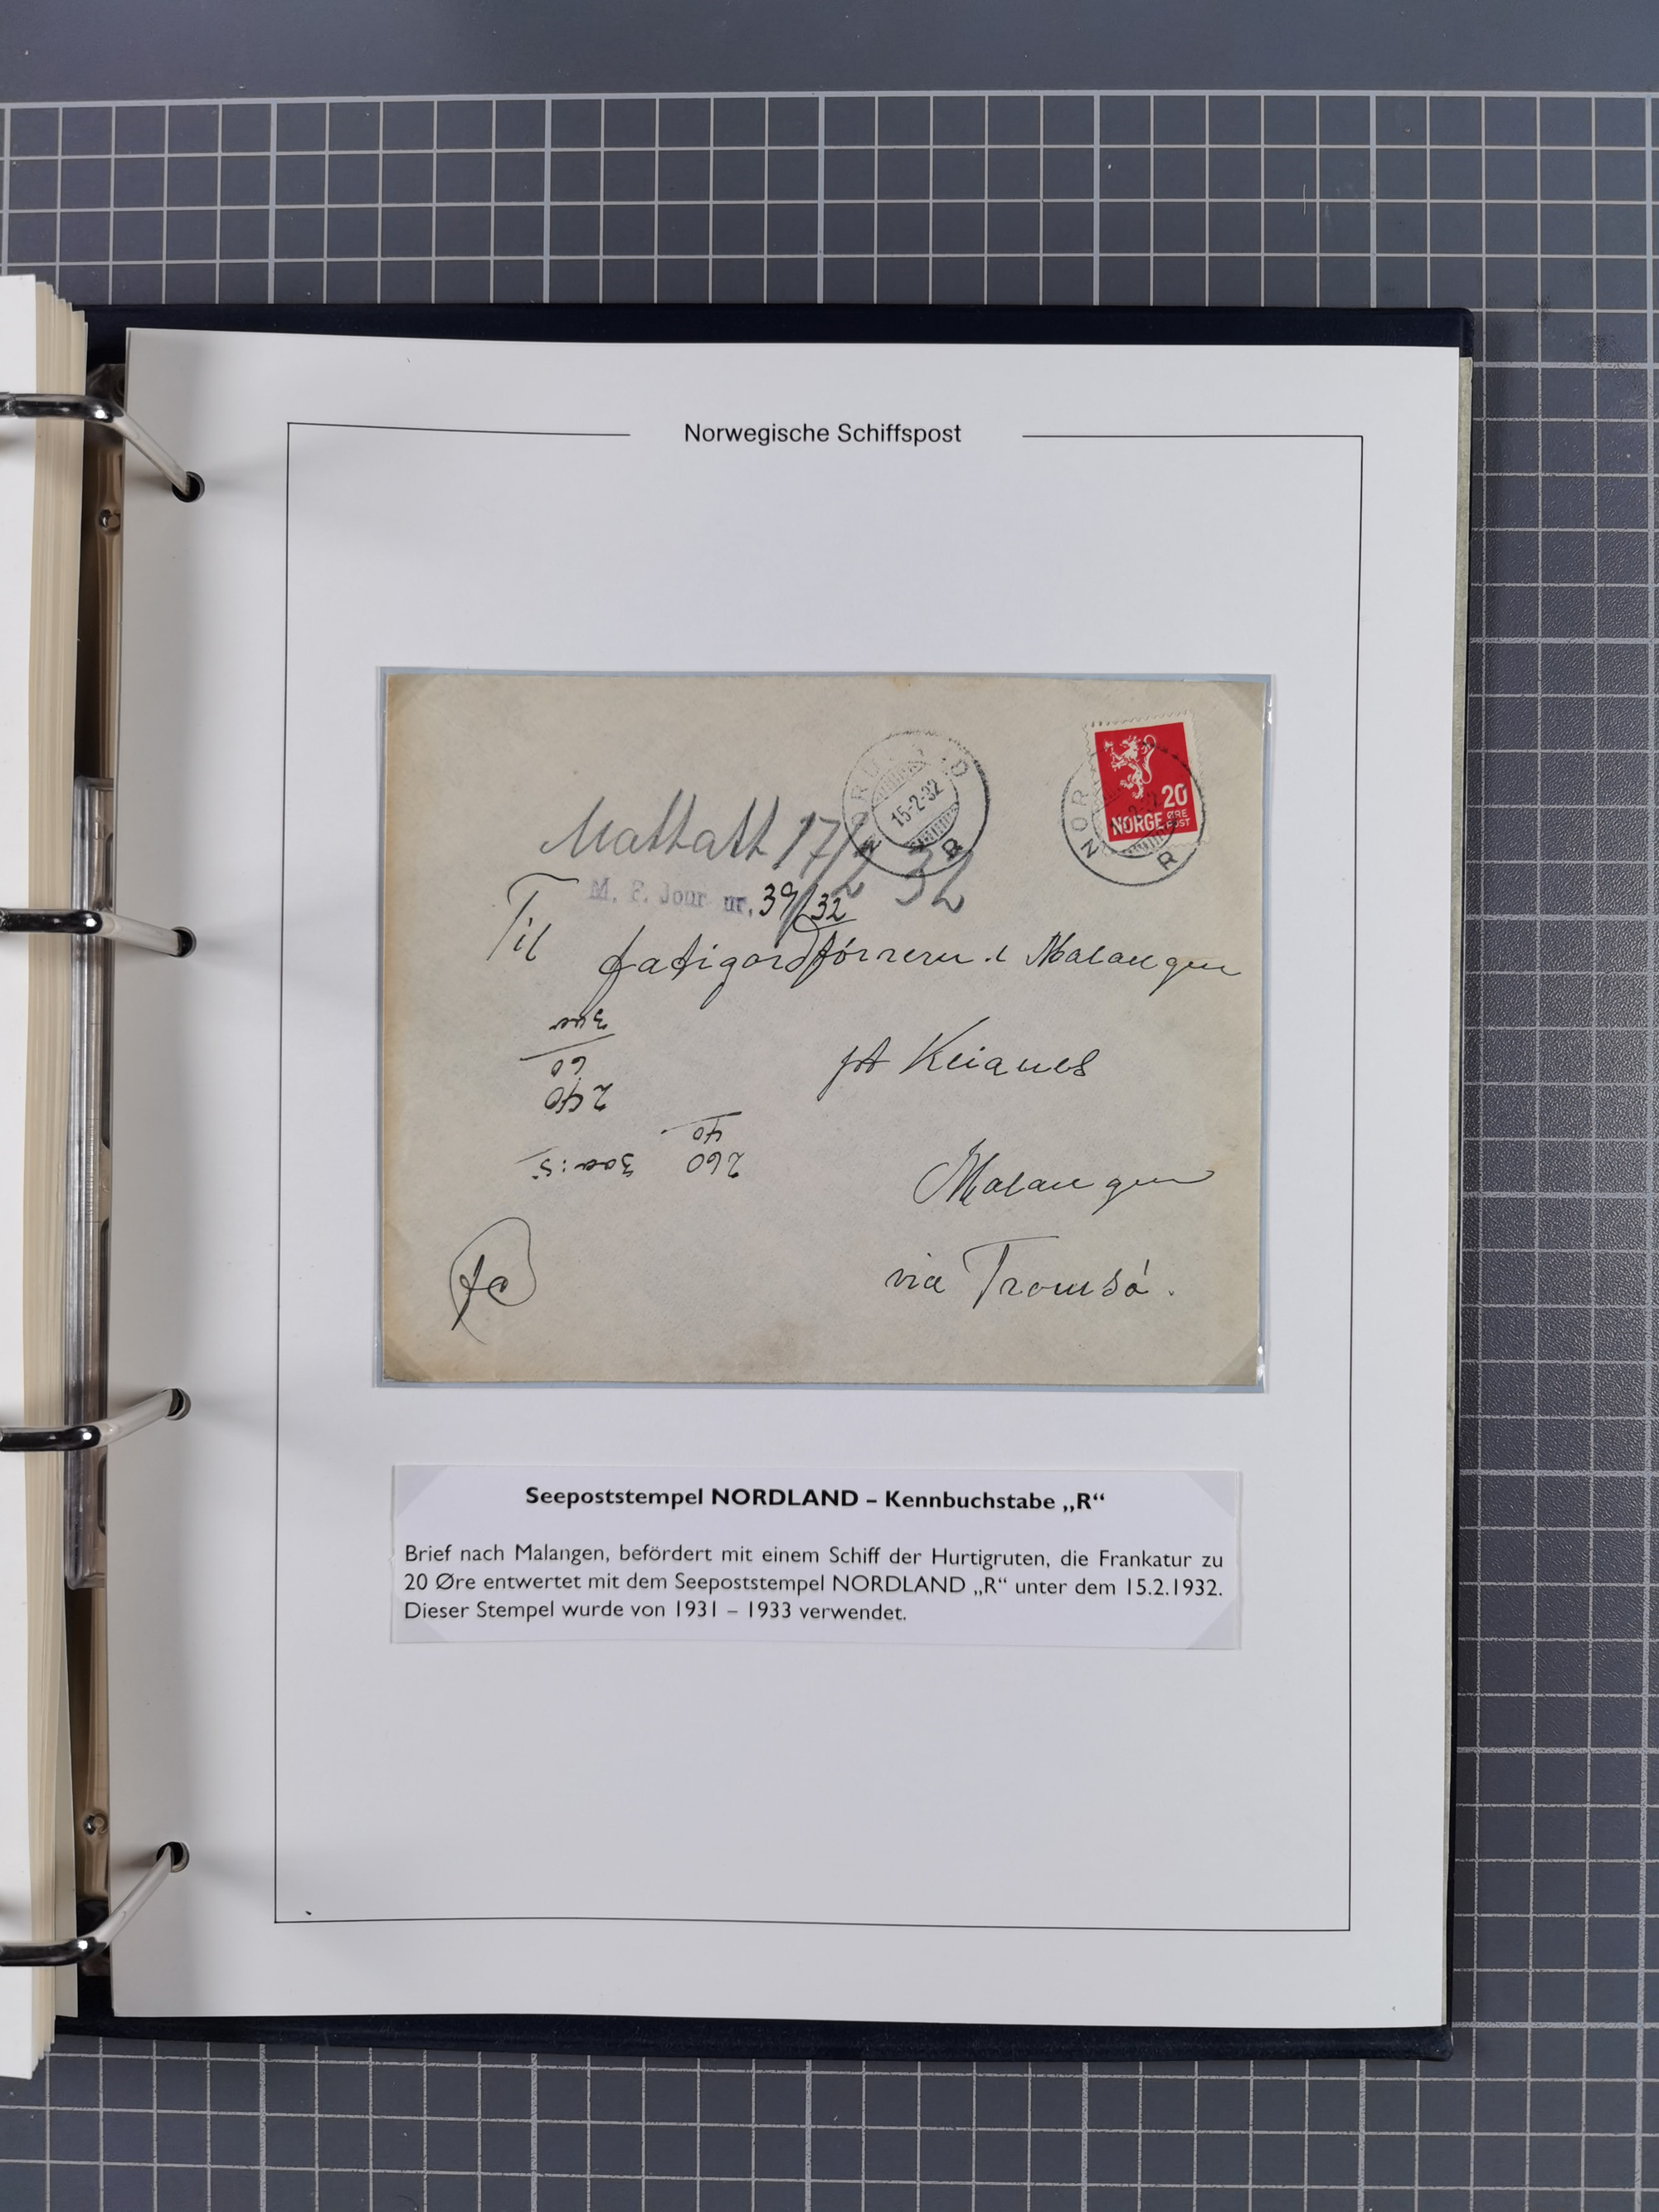 Norwegische Schiffspost
NORDLAND
15-2-32
R
NOR
R
20
NORGE ØRE
POST
Mottatt 17/2 32
M. F. Jour nr. 39/32
Til
fatigordförreren i Malangen
pt Keianes
Malangen
via Tromsö.
300:5
260
40
240
60
Seepoststempel NORDLAND – Kennbuchstabe „R“
Brief nach Malangen, befördert mit einem Schiff der Hurtigruten, die Frankatur zu
20 Øre entwertet mit dem Seepoststempel NORDLAND „R“ unter dem 15.2.1932.
Dieser Stempel wurde von 1931 – 1933 verwendet.